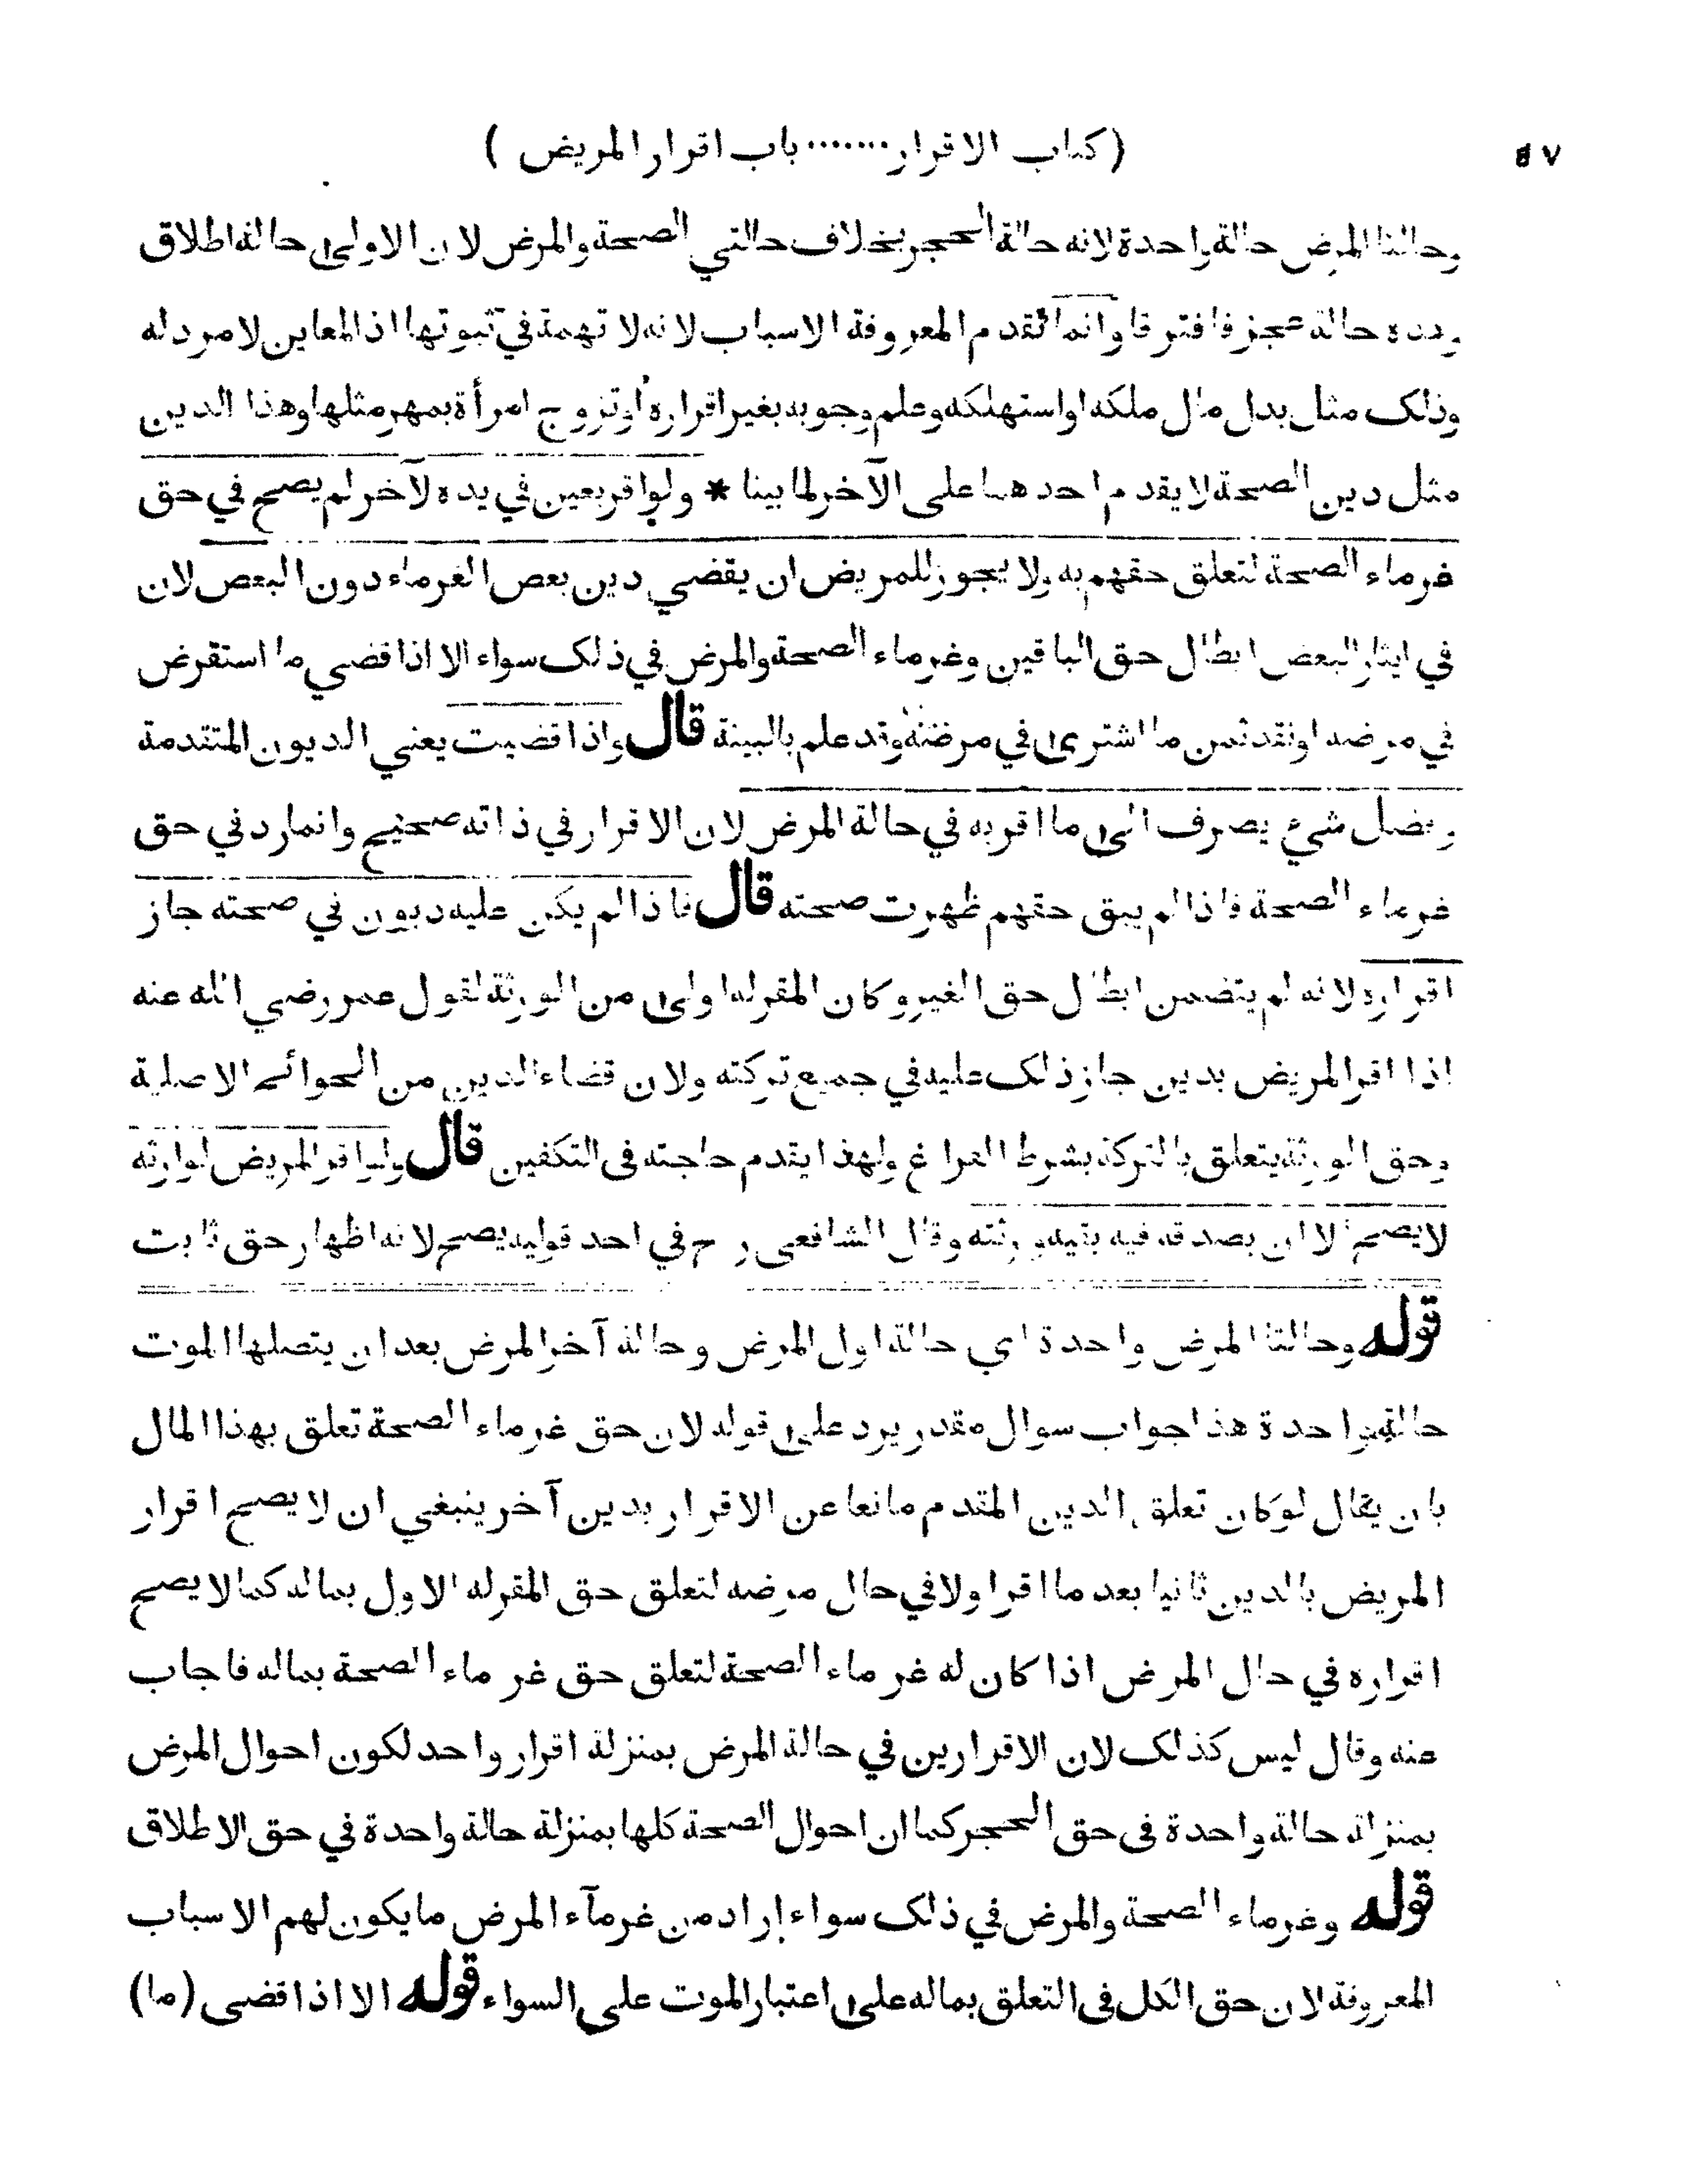 ( كتاب الاقرار ....... باب اقرار المريض )
وحالتا المرض حالة واحدة لانه حالة الحجر بخلاف حالتي الصحة والمرض لان الاولى حالة اطلاق
وهذه حالة عجز فافترقا وانما تقدم المعروفة الاسباب لانه لا تهمة في ثبوتها اذ المعاين لا مرد له
وذلك مثل بدل مال ملكه او استهلكه وعلم وجوبه بغير اقراره او تزوج امرأة بمهر مثلها وهذا الدين
مثل دين الصحة لا يقدم احدهما على الآخر لما بينا * ولو اقر بعين في يده لآخر لم يصح في حق
غرماء الصحة لتعلق حقهم به ولا يجوز للمريض ان يقضي دين بعض الغرماء دون البعض لان
في ايثار البعض ابطال حق الباقين وغرماء الصحة والمرض في ذلك سواء الا اذا قضى ما استقرض
في مرضه او نقد ثمن ما اشترى في مرضه وقد علم بالبينة قال واذا قضيت يعني الديون المتقدمة
وفضل شيء يصرف الى ما اقر به في حالة المرض لان الاقرار في ذاته صحيح وانما رد في حق
غرماء الصحة فاذا لم يبق حقهم ظهرت صحته قال فاذا لم يكن عليه ديون في صحته جاز
اقراره لانه لم يتضمن ابطال حق الغير وكان المقر له اولى من الورثة لقول عمر رضي الله عنه
اذا اقر المريض بدين جاز ذلك عليه في جميع تركته ولان قضاء الدين من الحوائج الاصلية
وحق الورثة يتعلق بالتركة بشرط الفراغ ولهذا يقدم حاجته فى التكفين قال ولو اقر المريض لوارثه
لا يصح الا ان يصدقه فيه بقية ورثته وقال الشافعى رح في احد قوليه يصح لانه اظهار حق ثابت
قوله وحالتا المرض واحدة اي حالة اول المرض وحالة آخر المرض بعد ان يتصلها الموت
حالة واحدة هذا جواب سوال مقدر يرد على قوله لان حق غرماء الصحة تعلق بهذا المال
بان يقال لو كان تعلق الدين المتقدم مانعا عن الاقرار بدين آخر ينبغي ان لا يصح اقرار
المريض بالدين ثانيا بعد ما اقر اولا في حال مرضه لتعلق حق المقر له الاول بماله كما لا يصح
اقراره في حال المرض اذا كان له غرماء الصحة لتعلق حق غرماء الصحة بماله فاجاب
عنه وقال ليس كذلك لان الاقرارين في حالة المرض بمنزلة اقرار واحد لكون احوال المرض
بمنزلة حالة واحدة فى حق الحجر كما ان احوال الصحة كلها بمنزلة حالة واحدة في حق الاطلاق
قوله وغرماء الصحة والمرض في ذلك سواء اراد من غرمآء المرض ما يكون لهم الاسباب
المعروفة لان حق الكل فى التعلق بماله على اعتبار الموت على السواء قوله الا اذا قضى (ما)